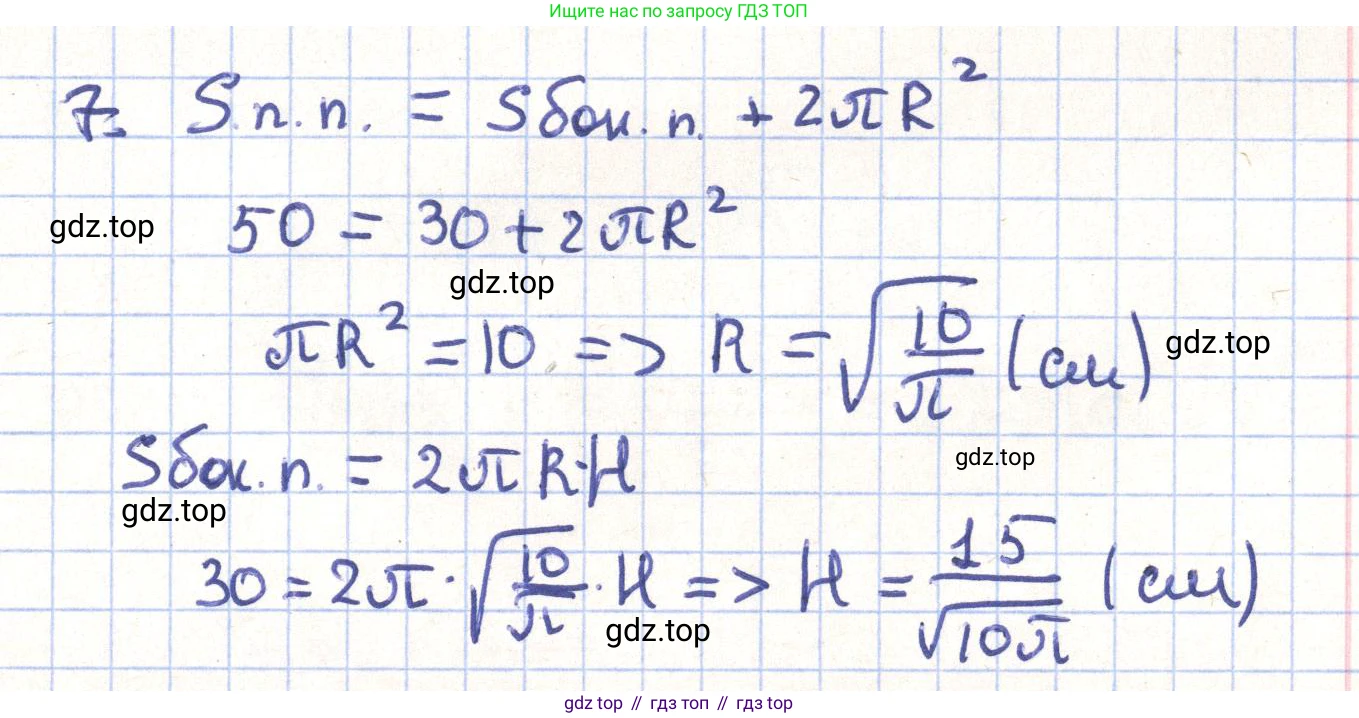 Ищите нас по запросу ГДЗ ТОП
7. Sп.п. = Sбок.п. + 2πR²
gdz.top 50 = 30 + 2πR²
gdz.top
πR² = 10 => R = √(10/π) (см) gdz.top
gdz.top
Sбок.п. = 2πR·H
gdz.top
30 = 2π·√(10/π)·H => H = 15/√(10π) (см)
gdz.top
gdz top // гдз топ // gdz top